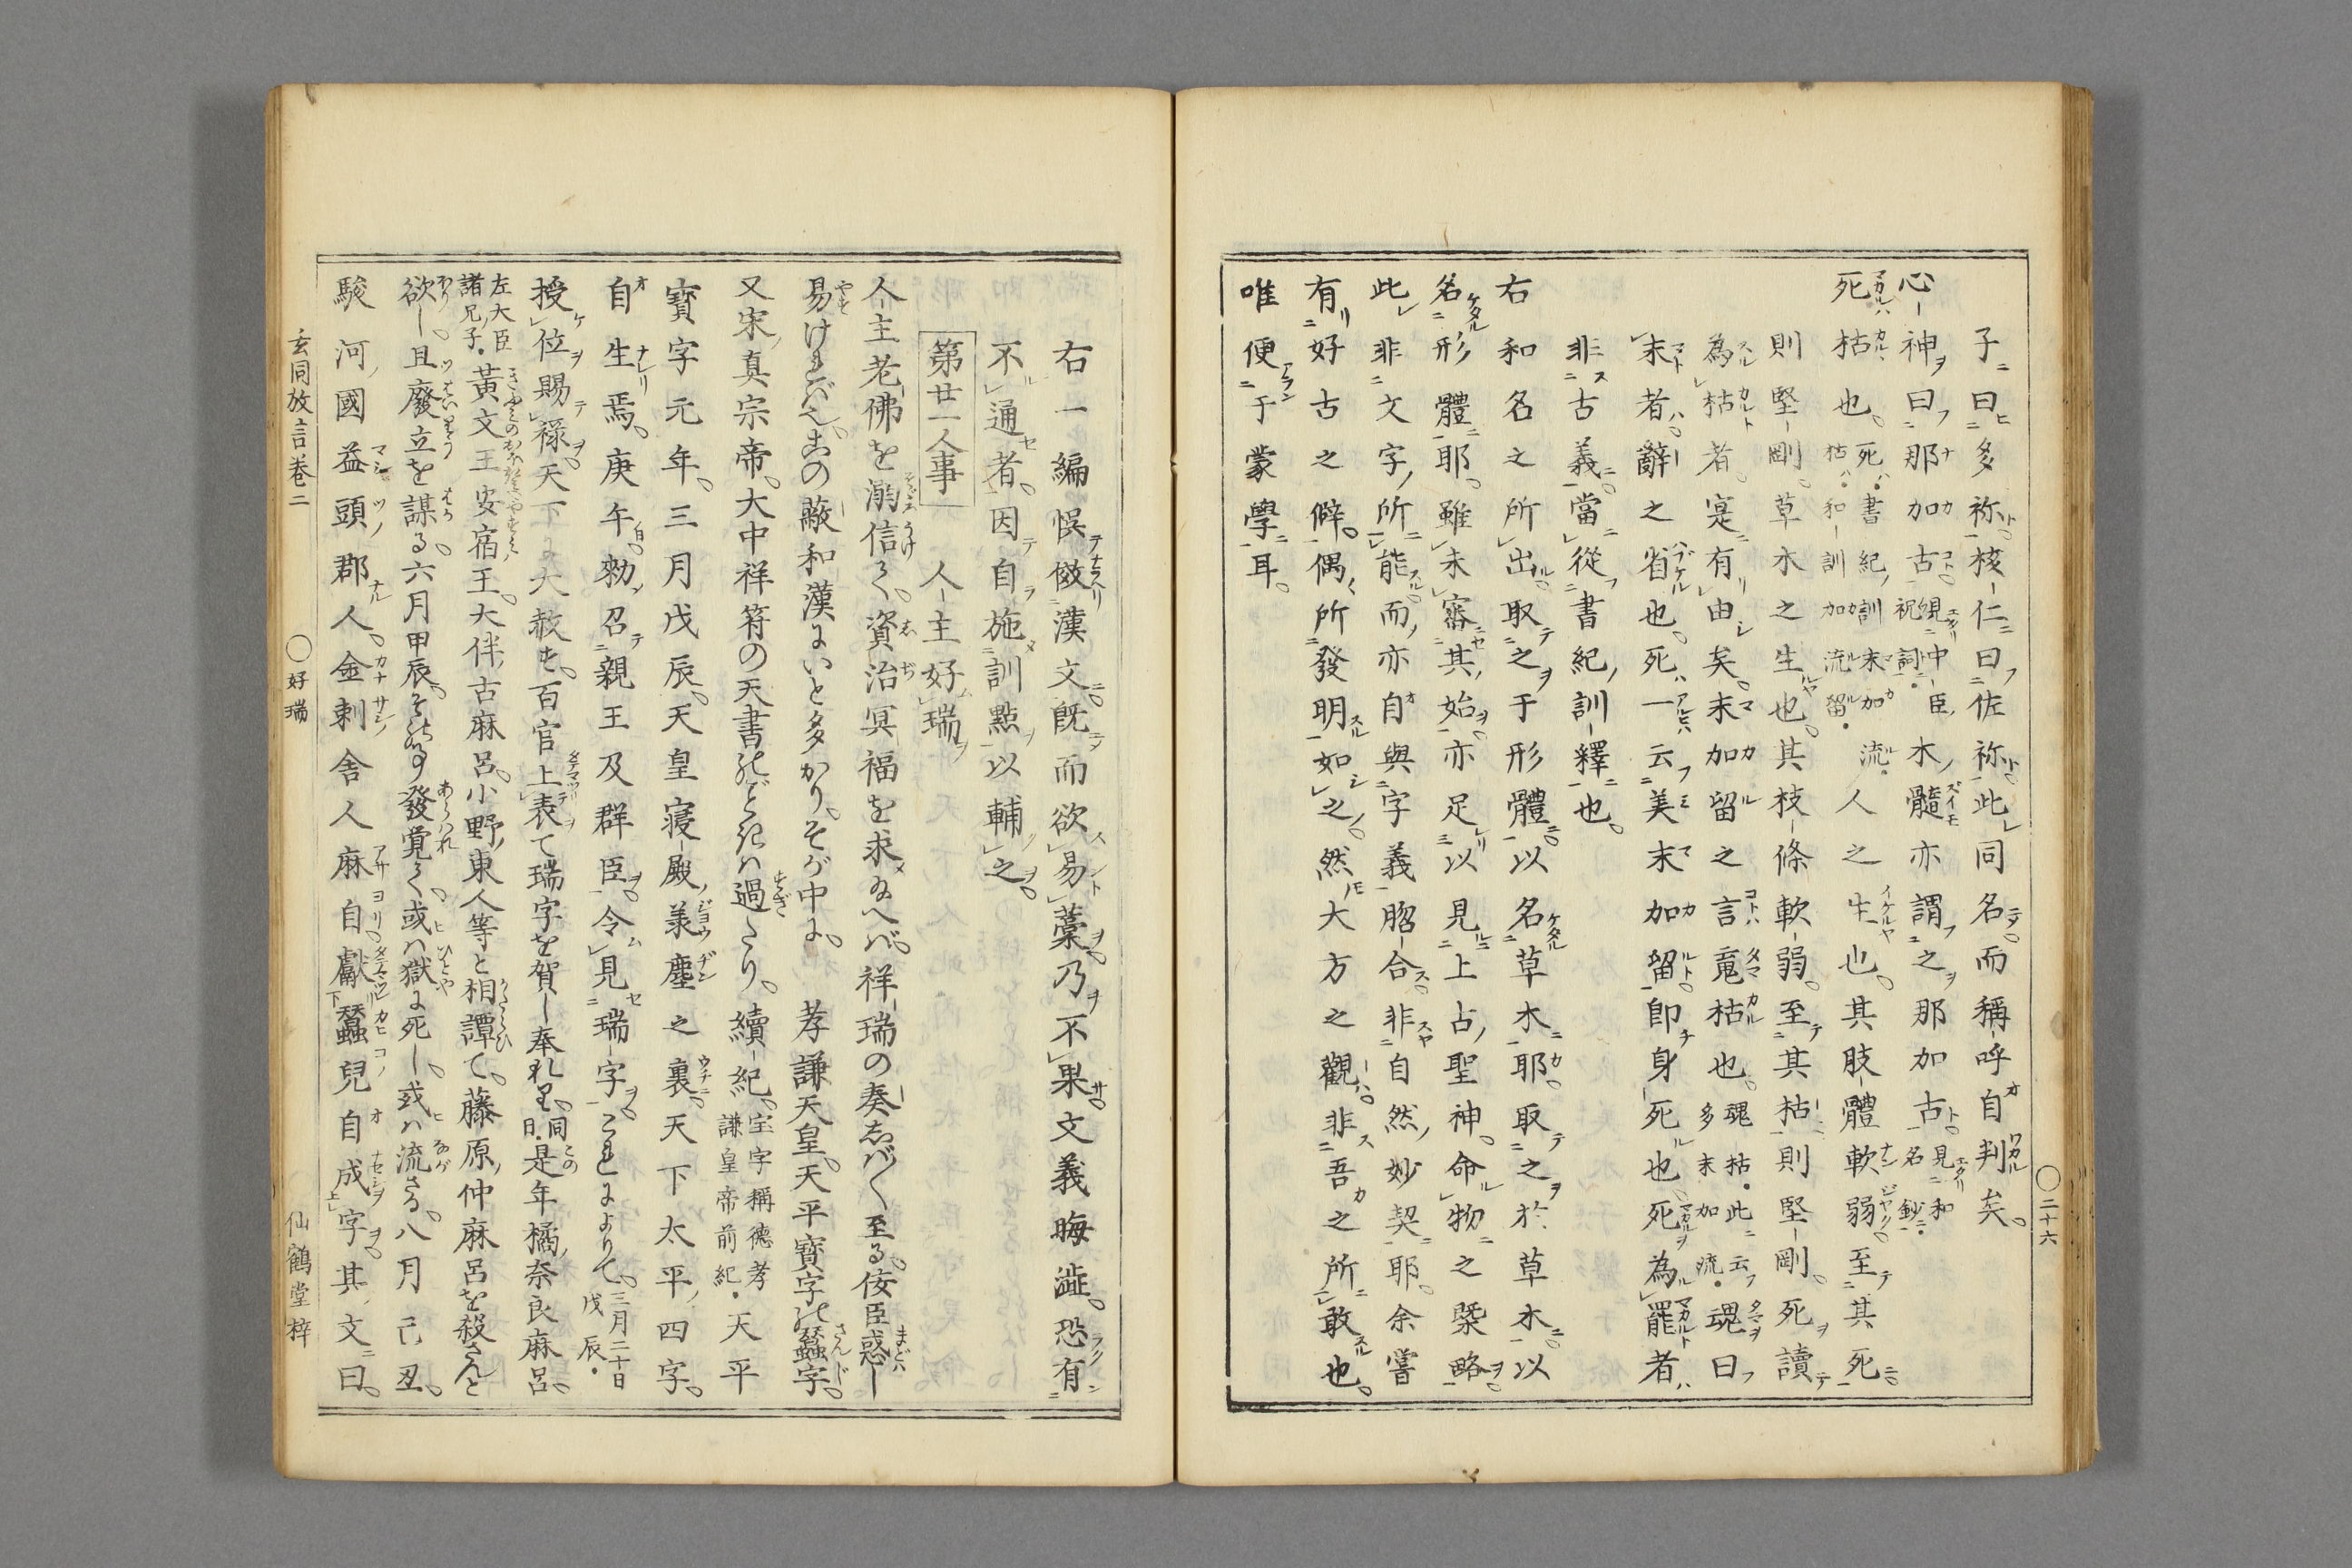 子曰多祢核仁曰佐祢此同名而稱呼自判矣
心神曰那加古見中臣祝詞木髓亦謂之那加古見和名鈔
死枯也死書紀訓末加流枯和訓加流留人之生也其肢體軟弱至其死
則堅剛草木之生也其枝條軟弱至其枯則堅剛死讀
為枯者寔有由矣末加留之言竟枯也魂枯此云多末加流魂曰
末者辭之省也死一云美末加留即身死也死為罷者
非古義當從書紀訓釋也
右和名之所出取之于形體以名草木耶取之於草木以
名形體耶雖未審其始亦足以見上古聖神命物之槩略
此非文字所能而亦自與字義脗合非自然妙契耶余嘗
有好古之僻偶所發明如之然大方之觀非吾之所敢也
唯便于蒙學耳
○二十六
右一編悞傚漢文既而欲易藁乃不果文義晦澁恐有
不通者因自施訓點以輔之
第廿一人事 人主好瑞
人主老佛を溺信て資治冥福を求め給へば祥瑞の奏しば〱至る佞臣惑し
易ければ也この蔽和漢にいと多かりそが中に孝謙天皇天平寶字の蠶字
又宋真宗帝大中祥符の天書のごときは過たり續紀宝字稱德孝謙皇帝前紀天平
寶字元年三月戊辰天皇寢殿羕塵之裏天下太平四字
自生焉庚午勅召親王及群臣令見瑞字これによりて三月二十日戊辰
授位賜禄天下に大赦す百官上表て瑞字を賀し奉れり同日是年橘奈良麻呂
左大臣諸兄子黃文王安宿王大伴古麻呂小野東人等と相譚て藤原仲麻呂を殺さんと
欲し且廢立を謀る六月甲辰その事發覚て或は獄に死し或は流さる八月己丑
駿河國益頭郡人金刺舎人麻自獻蠶兒自成字其文曰
玄同放言巻二 ○好瑞 仙鶴堂梓